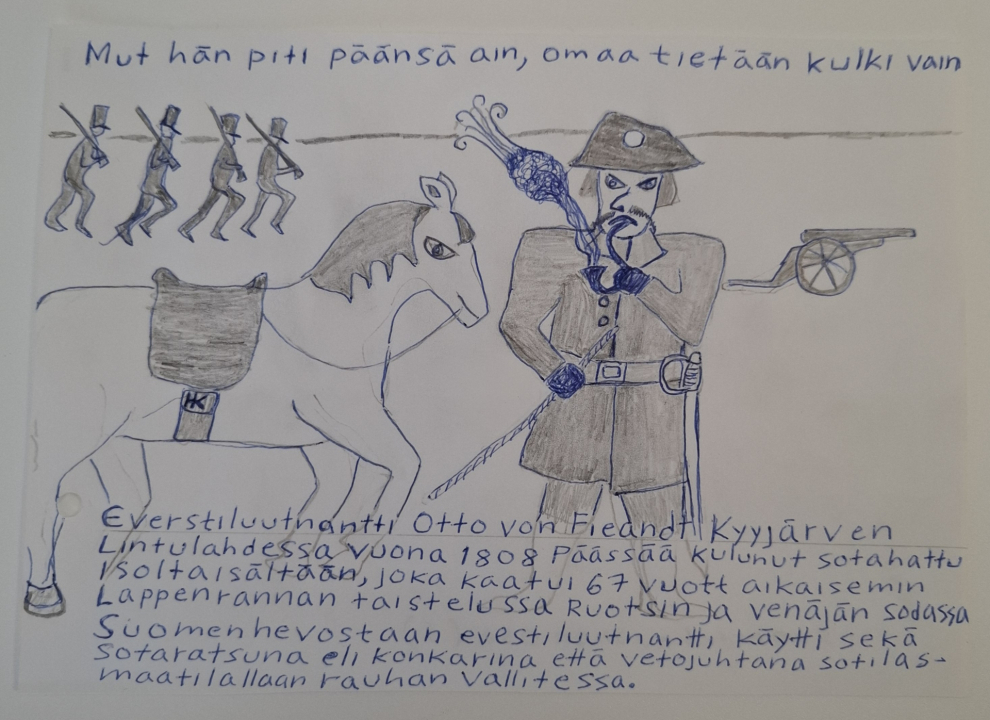 Mut hān piti pāānsā ain, omaa tietāān kulki vain
HK
Everstiluutnantti Otto von Fieandt Kyyjārven
Lintulahdessa vuona 1808 Pāāssāā kulunut sotahattu
Isoltaisāltāān, joka kaatui 67 vuott aikaisemin
Lappenrannan taistelussa Ruotsin ja venājān sodassa
Suomenhevostaan evestiluutnantti kāytti sekā
sotaratsuna eli konkarina ettā vetojuhtana sotilas-
maatilallaan rauhan vallitessa.